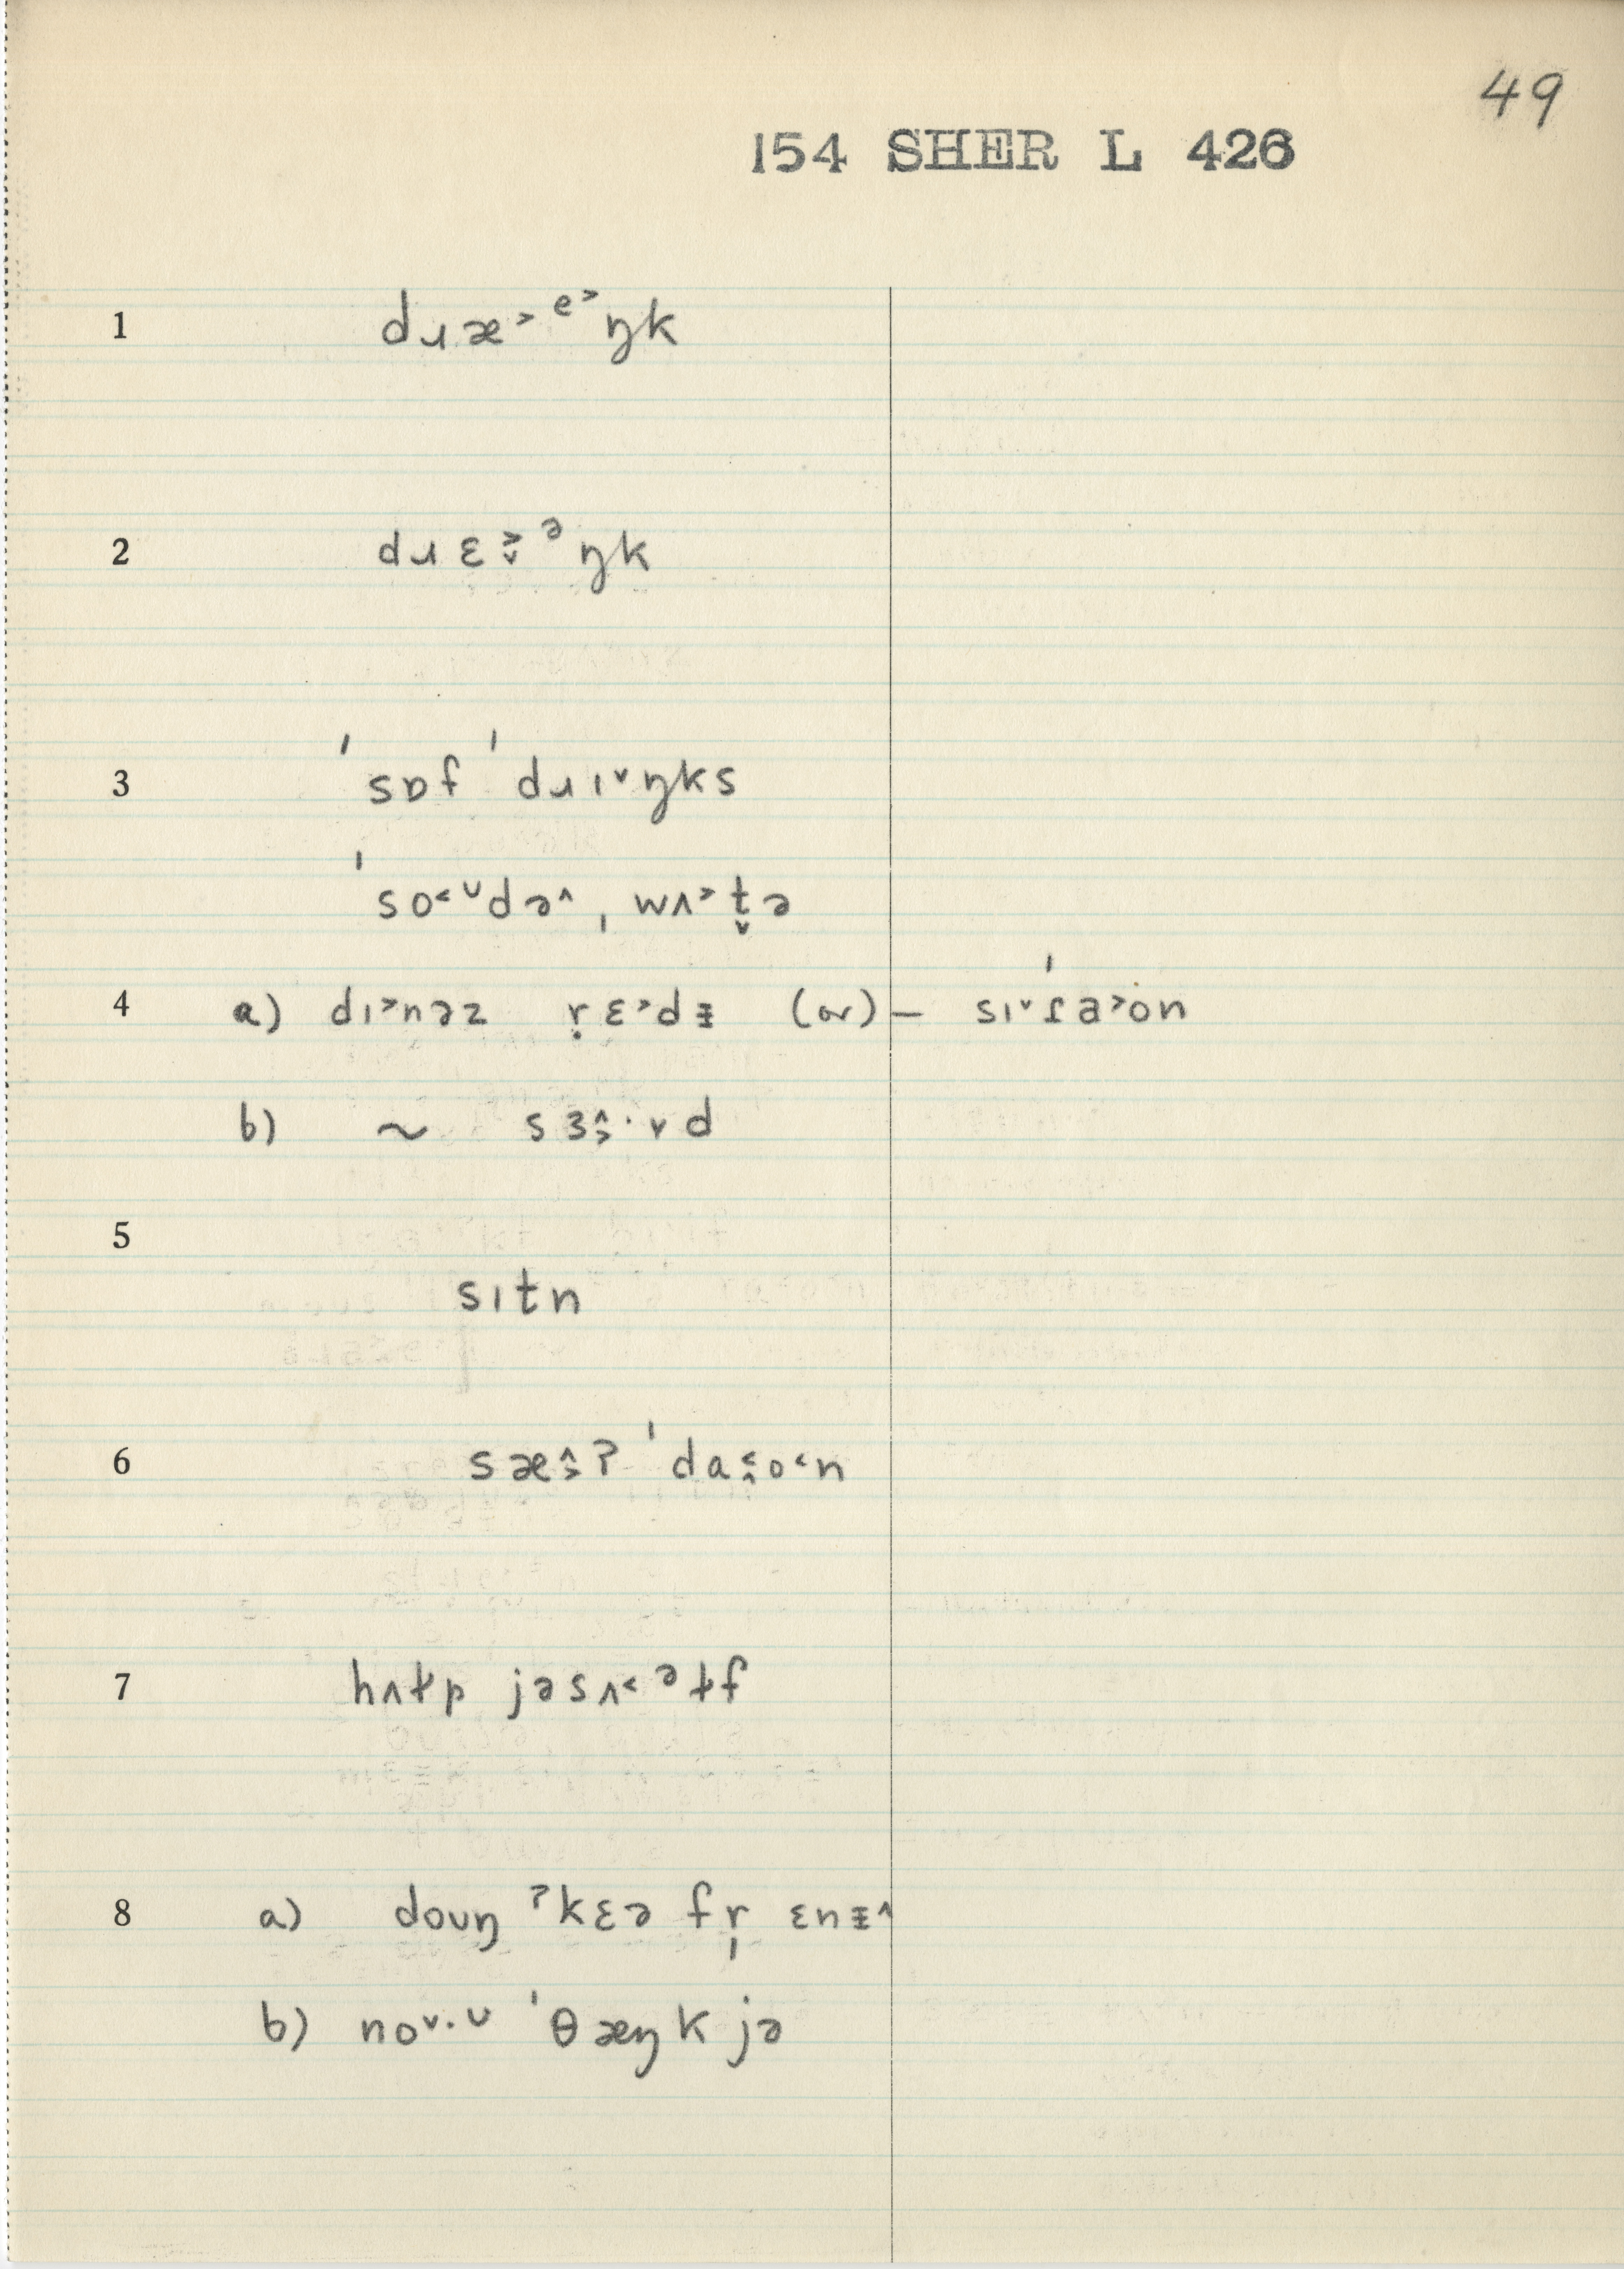 49
154 SHER L 426
1 dɹæ˃ᵉ˃ŋk
2 dɹɛ˲̬ᵊŋk
3 ˈsɒf ˈdɹɪ˅ŋks
ˈso˂ᶷdə˄, wʌ˃t̬ə
4 a) dɪ˃nəz r̩ɛ˃dɪ (or) — sɪ˅ɾa˃ʊn
b) ~ sɜ˄˃·vd
5
sɪtn
6 sæ˄˃ʔ ˈda˂˄o˂n
7 hʌɫp jəsʌ˂ᵊɫf
8 a) doʊŋ ˀkɛə fr̩ ɛnɪ˄
b) no˅·ᶷ ˈθæŋk jə